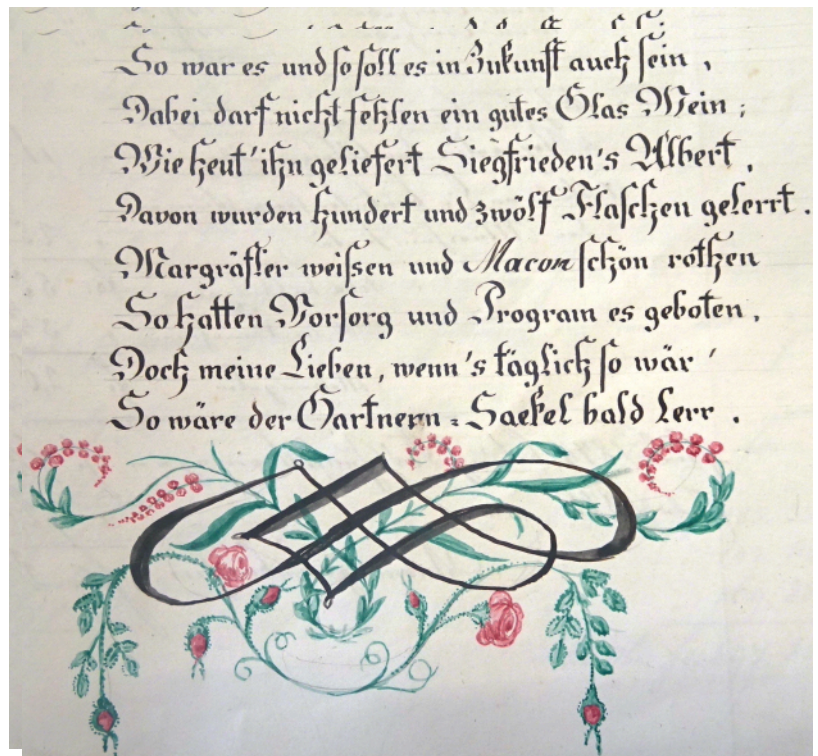 So war es und so soll es in Zukunft auch sein,
Dabei darf nicht fehlen ein gutes Glas Wein;
Wie heut' ihn geliefert Siegfrieden's Albert,
Davon wurden hundert und zwölf Flaschen gelerrt.
Margräfler weissen und Macon schön rothen
So hatten Vorsorg und Program es geboten,
Doch meine Lieben, wenn's täglich so wär'
So wäre der Gartnern=Saekel bald Lerr.